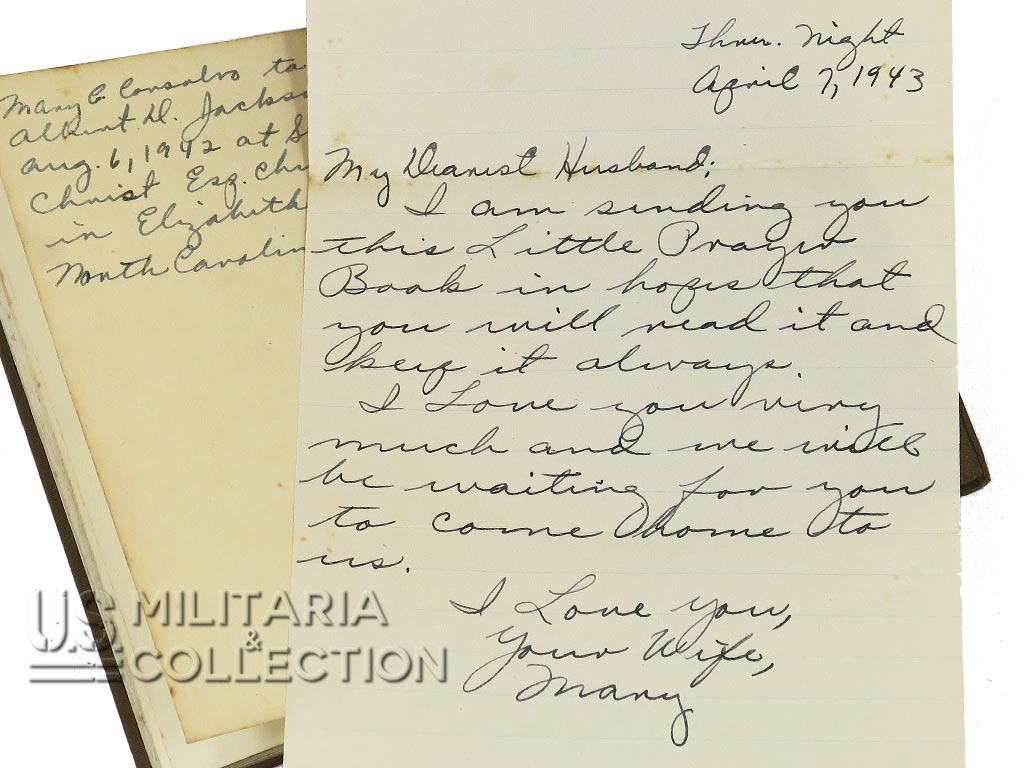 Mary C. Consolvo to
Albert D. Jackso
Aug. 6, 1942 at S
Christ Esq. Chu
in Elizabeth
North Carolin
Thur. Night
April 7, 1943
My Dearest Husband;
I am sending you
this Little Prayer
Book in hopes that
you will read it and
keep it always.
I Love you very
much and we will
be waiting for you
to come home to
us.
I Love You,
Your Wife,
Mary
U.S. MILITARIA
& COLLECTION